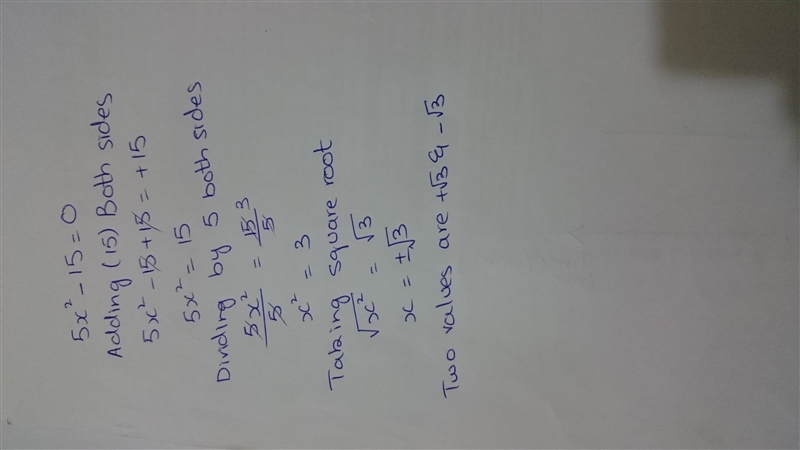 5x² - 15 = 0
Adding (15) Both sides
5x² - 15 + 15 = + 15
5x² = 15
Dividing by 5 both sides
5x²/5 = 15/5 3
x² = 3
Taking square root
√x² = √3
x = ±√3
Two values are +√3 & -√3